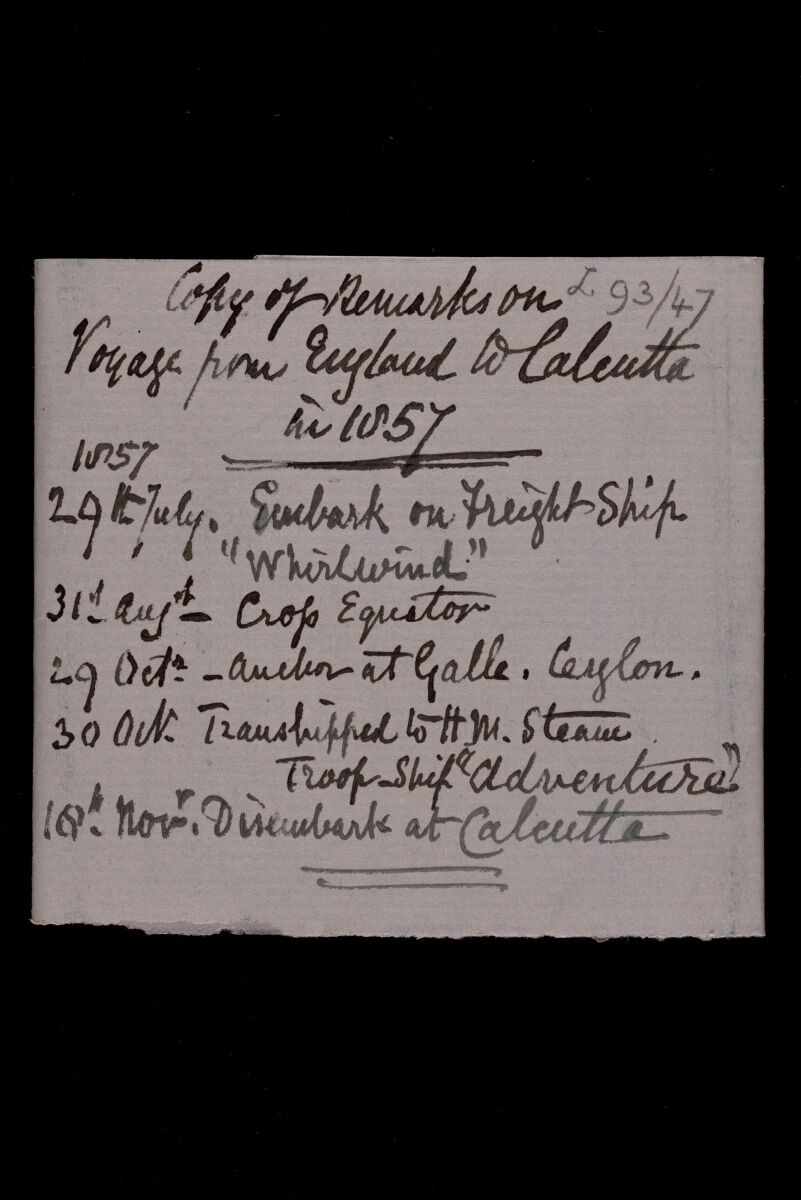 Copy of Remarks on L 93/47
Voyage from England to Calcutta
in 1857
1857
29th July. Embark on Freight Ship
"Whirlwind."
31st Augst - Cross Equator
29 Octr - Anchor at Galle. Ceylon.
30 Oct. Transhipped to H.M. Steam
Troop-Ship "Adventure"
18th Novr. Disembark at Calcutta